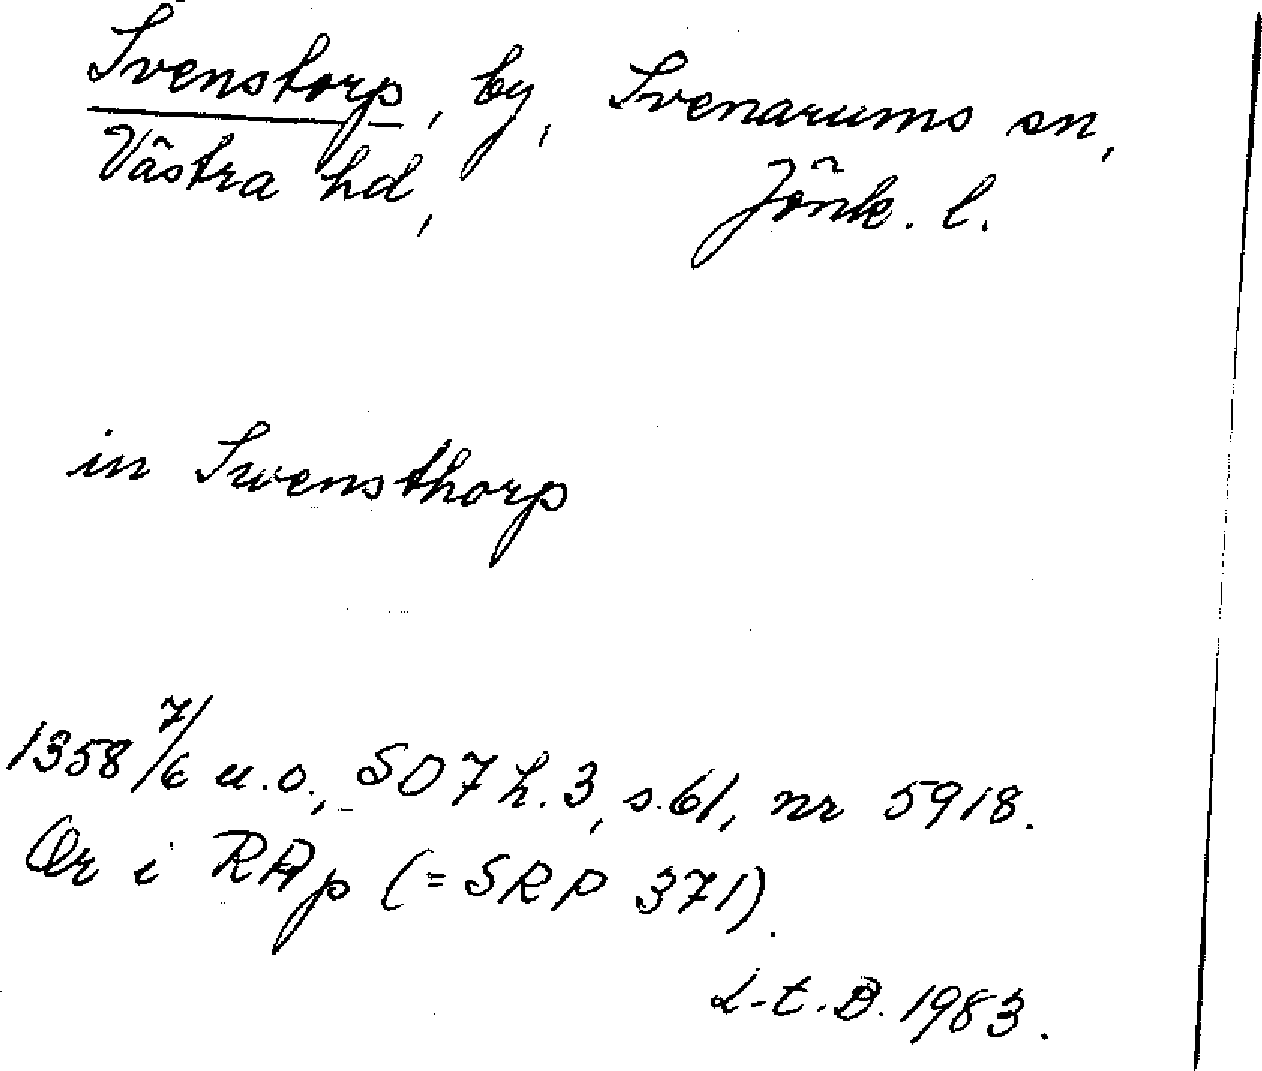 Svenstorp, by, Svenarums sn,
Västra hd, Jönk. l.
in Swensthorp
1358 7/6 u.o., SD 7 h. 3, s. 61, nr 5918.
Or i RAp (= SRP 371).
L-t. B. 1983.